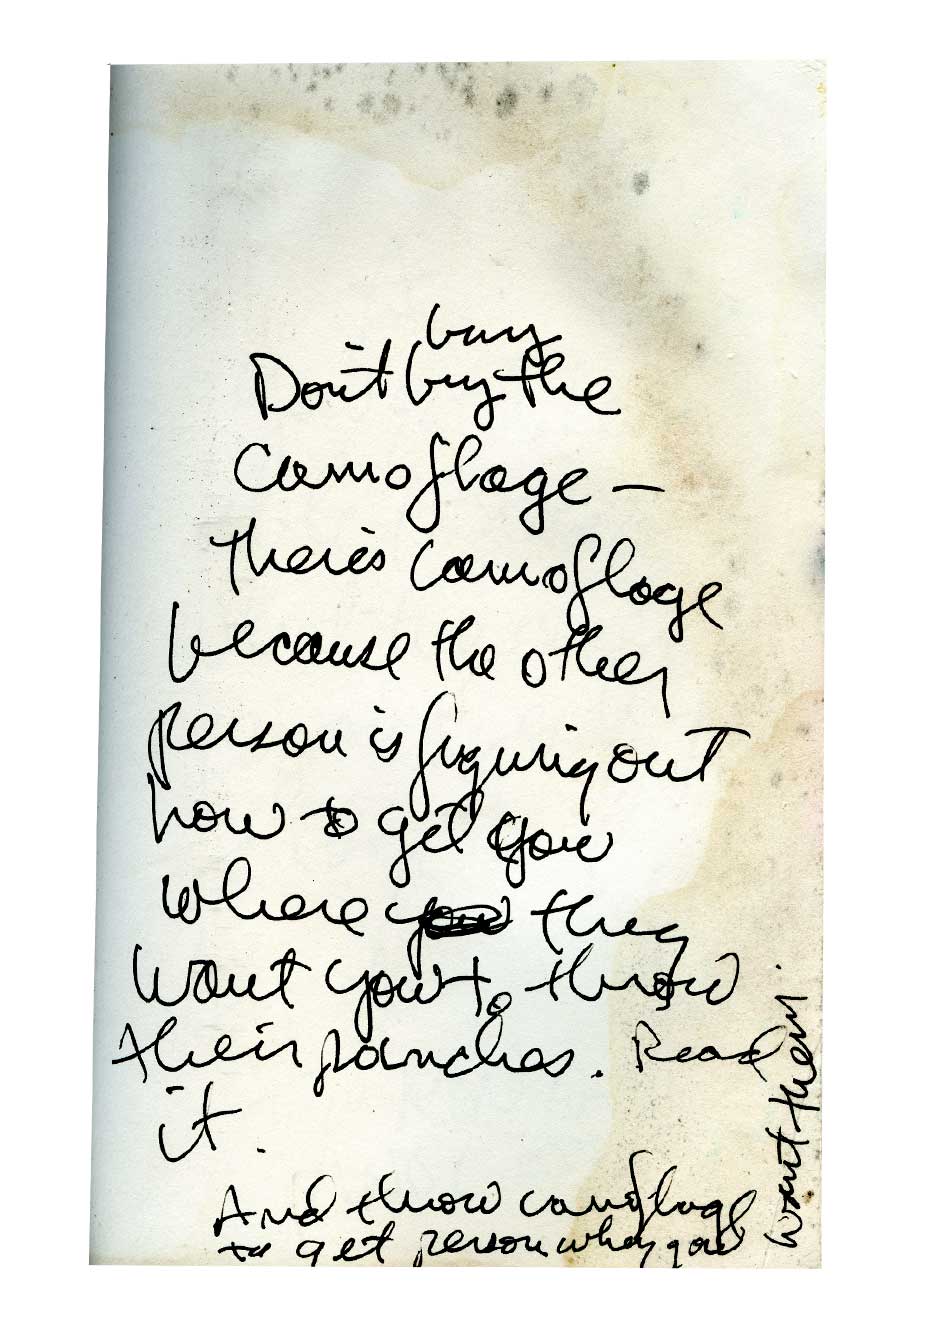 buy
Don't buy the
Camoflage —
there's camoflage
because the other
person is figuring out
how to get you
where you they
want you to throw
their panches. Read
it.
And throw camoflage
to get person where you
want them.